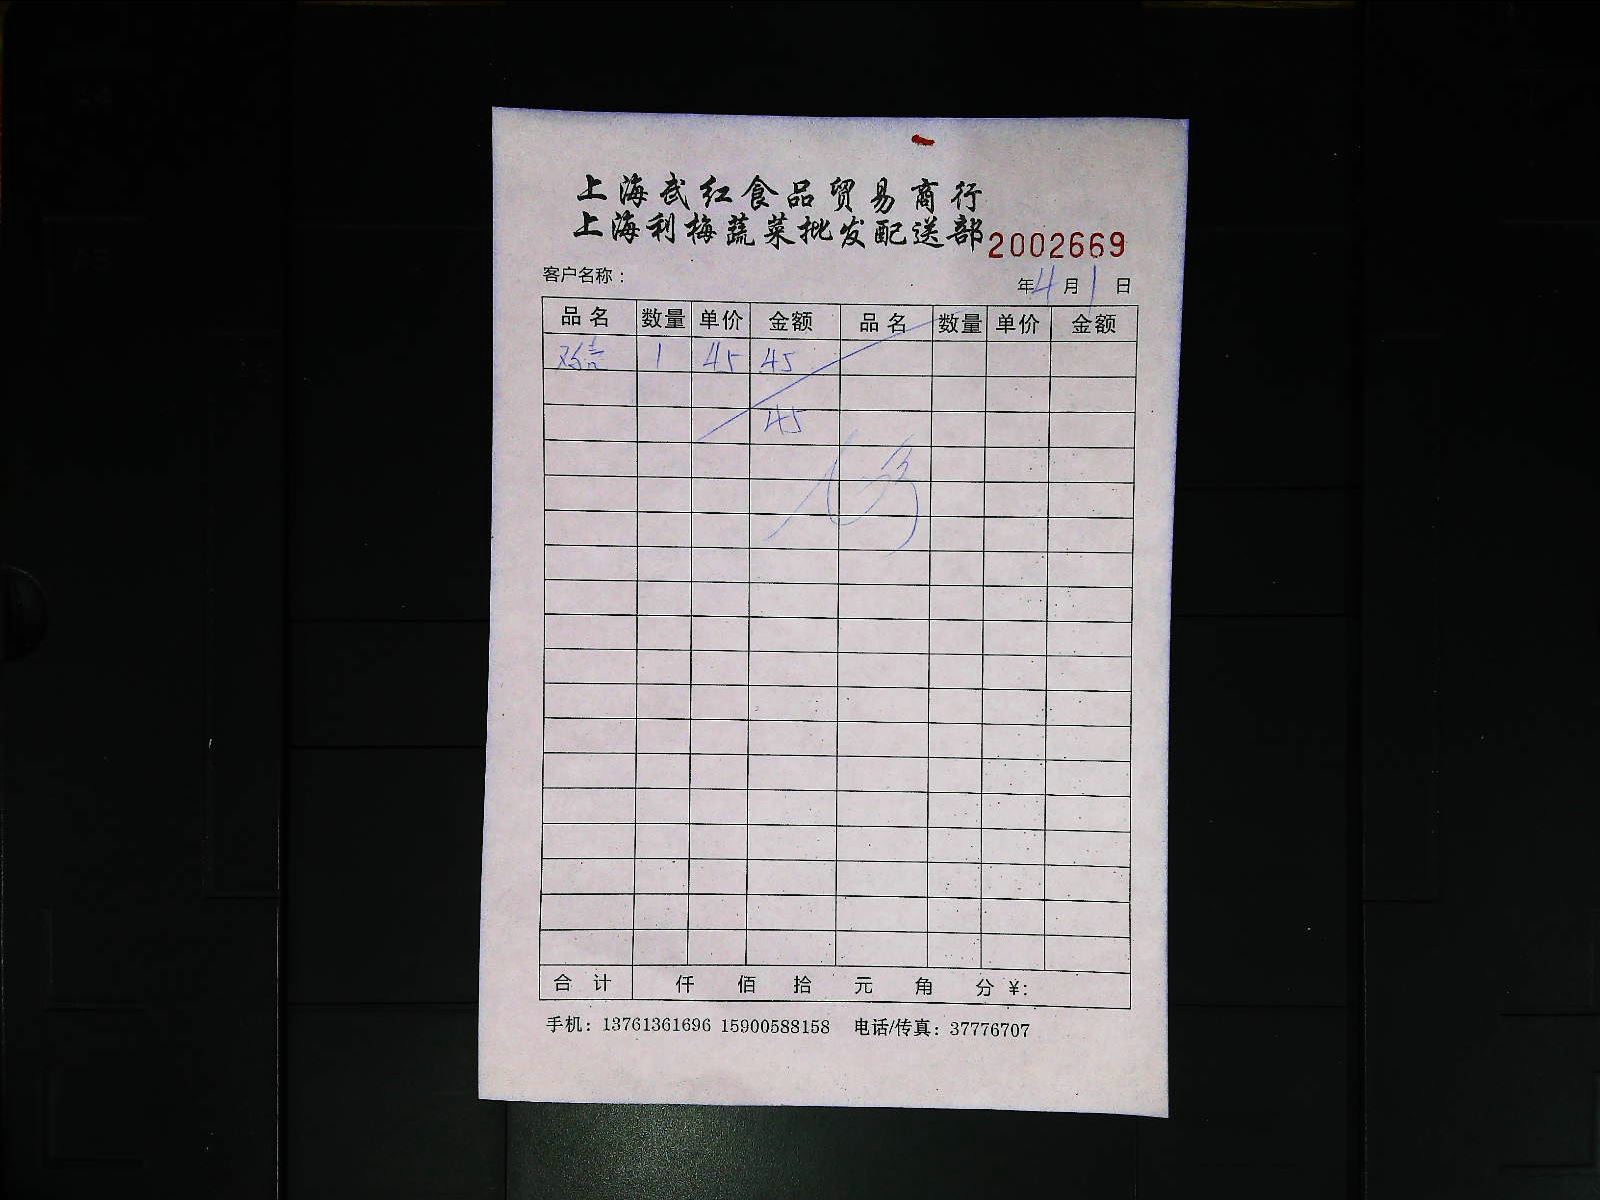 上海武红食品贸易商行
上海利梅蔬菜批发配送部 2002669
客户名称： 年 4 月 1 日
品名 数量 单价 金额 品名 数量 单价 金额
1 45 45
45
合计 仟 佰 拾 元 角 分 ¥:
手机：13761361696 15900588158 电话/传真：37776707